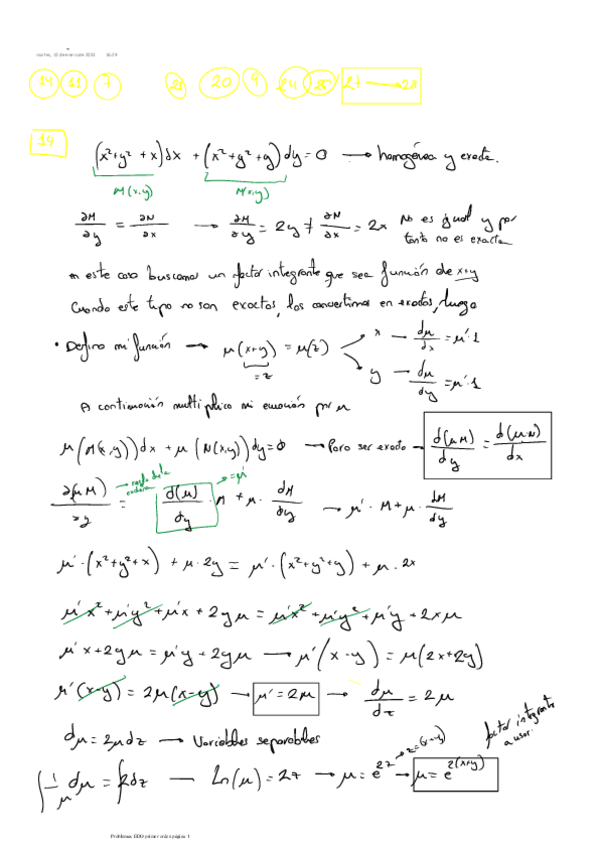 martes, 15 de marzo de 2022 16:29
14 11 7 21 20 9 24 25 27 → 28
14
(x²+y²+x)dx + (x²+y²+y)dy=0 → homogénea y exacta.
M(x,y) N(x,y)
∂M/∂y = ∂N/∂x → ∂M/∂y = 2y ≠ ∂N/∂x = 2x No es igual y por tanto no es exacta
en este caso buscamos un factor integrante que sea función de x+y
Cuando este tipo no son exactos, los convertimos en exactos, luego
• Defino mi función → μ(x+y) = μ(z) x → dμ/dx = μ'·1
= z y → dμ/dy = μ'·1
A continuación multiplico mi ecuación por μ
μ(M(x,y))dx + μ(N(x,y))dy=0 → Para ser exacto → d(μM)/dy = d(μN)/dx
∂(μM)/∂y → regla de la cadena = d(μ)/dy → =μ' · M + μ · dM/dy → μ'·M+μ·dM/dy
μ'·(x²+y²+x) + μ·2y = μ'·(x²+y²+y) + μ·2x
μ'x²+μ'y²+μ'x+2yμ = μ'x²+μ'y²+μ'y+2xμ
μ'x+2yμ = μ'y+2yμ → μ'(x-y) = μ(2x+2y)
μ'(x-y) = 2μ(x-y) → μ'=2μ → dμ/dz = 2μ
dμ=2μdz → Variables separables
factor integrante a usar.
∫1/μ dμ = ∫2dz → Ln(μ)=2z → μ=e^2z → z=(x+y) → μ=e^2(x+y)
Problemas EDO primer orden página 1